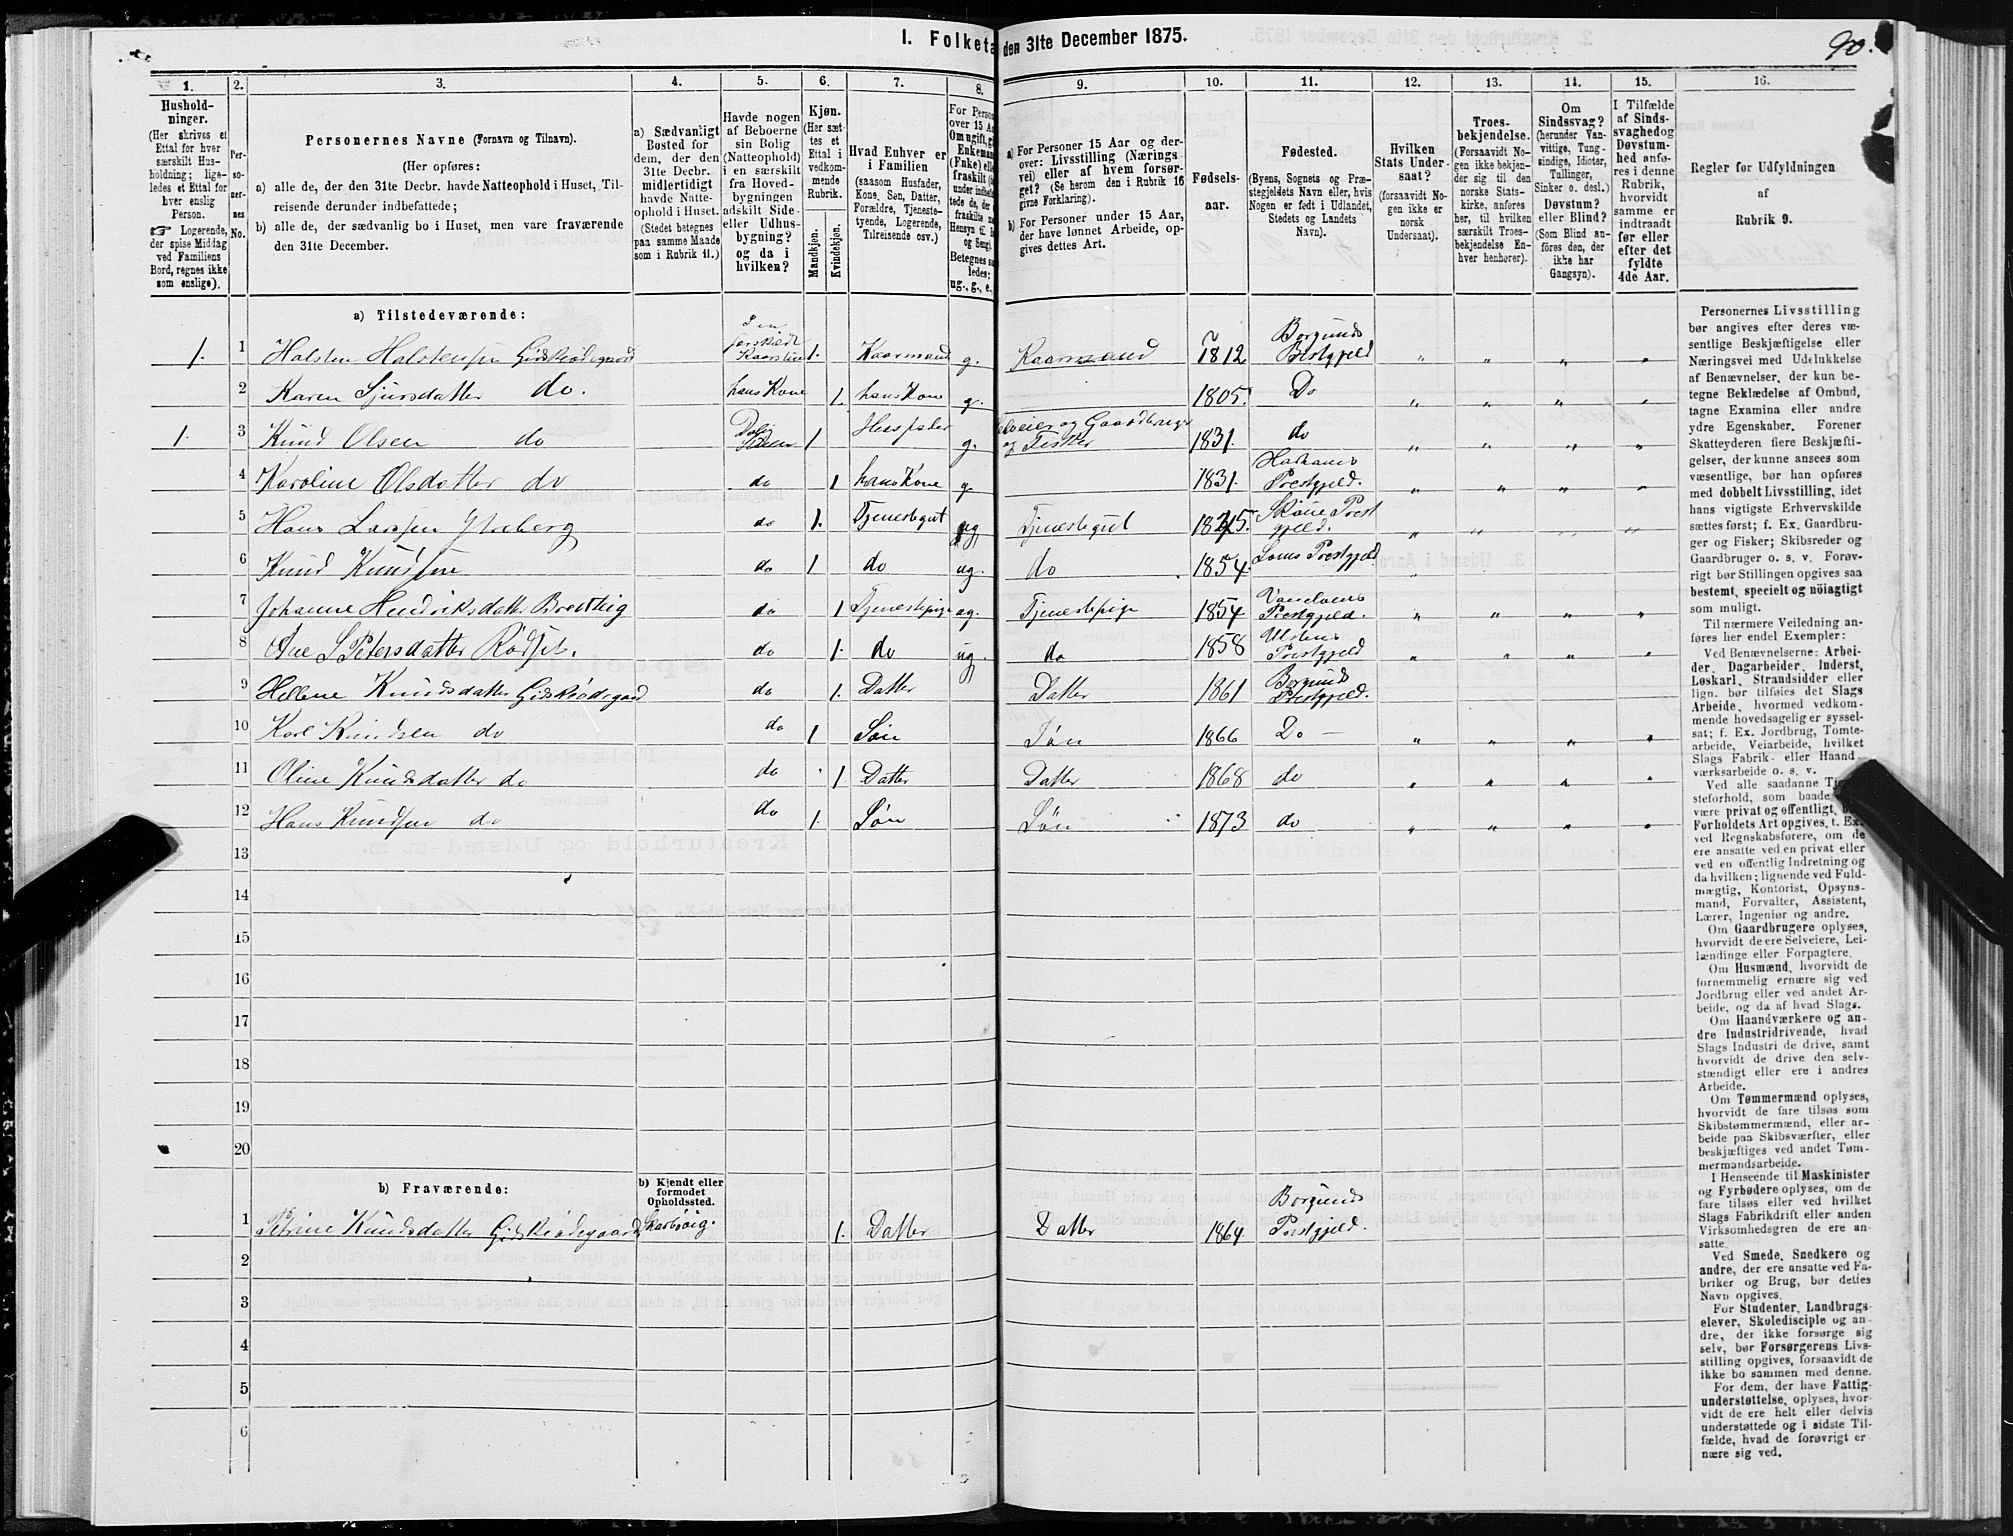 I. Folketa den 31te December 1875.
90.
1.
Hushold-
ninger.
(Her skrives et
Ettal for hver
særskilt Hus-
holdning; lige-
ledes et Ettal for
hver enslig
Person.
☞ Logerende,
der spise Middag
ved Familiens
Bord, regnes ikke
som enslige).
2.
Per-
so-
ner-
nes
No.
3.
Personernes Navne (Fornavn og Tilnavn).
(Her opføres:
a) alle de, der den 31te Decbr. havde Natteophold i Huset, Til-
reisende derunder indbefattede;
b) alle de, der sædvanlig bo i Huset, men vare fraværende
den 31te December.
4.
a) Sædvanligt
Bosted for
dem, der den
31te Decbr.
midlertidigt
havde Natte-
ophold i Huset.
(Stedet betegnes
paa samme Maade
som i Rubrik 11.)
5.
Havde nogen
af Beboerne
sin Bolig
(Natteophold)
i en særskilt
fra Hoved-
bygningen
adskilt Side-
eller Udhus-
bygning?
og da i
hvilken?
6.
Kjøn.
(Her sæt-
tes et
Ettal i
vedkom-
mende
Rubrik.
Mandkjøn.
Kvindekjøn.
7.
Hvad Enhver er
i Familien
(saasom Husfader,
Kone, Søn, Datter,
Forældre, Tjeneste-
tyende, Logerende,
Tilreisende osv.)
8.
For Person
over 15 Aa
Om ugift, g
Enkeman
(Fnke) elle
fraskilt (
under indbe
tede de, der
fraskilte m
Hensyn til
og Seng).
Betegnes sa
ledes:
ug., g., e.
9.
a) For Personer 15 Aar og der-
over: Livsstilling (Nærings-
vei) eller af hvem forsør-
get? (Se herom den i Rubrik 16
givne Forklaring).
b) For Personer under 15 Aar,
der have lønnet Arbeide, op-
gives dettes Art.
10.
Fødsels-
aar.
11.
Fødested.
(Byens, Sognets og Præ-
stegjeldets Navn eller, hvis
Nogen er født i Udlandet,
Stedets og Landets
Navn).
12.
Hvilken
Stats Under-
saat?
(forsaavidt No-
gen ikke er
norsk
Undersaat).
13.
Troes-
bekjendelse.
(Forsaavidt No-
gen ikke bekjen-
der sig til den
norske Stats-
kirke, anføres
her, til hvilken
særskilt Troes-
bekjendelse En-
hver henhører).
14.
Om
Sindssvag?
(herunder Van-
vittige, Tung-
sindige, Idioter,
Tullinger,
Sinker o. desl.)
Døvstum?
eller Blind?
(Som Blind an-
føres den, der
ikke har
Gangsyn).
15.
I Tilfælde
af Sinds-
svaghed og
Døvstum-
hed anfø-
res i denne
Rubrik,
hvorvidt
samme er
indtraadt
før eller
efter det
fyldte
4de Aar.
16.
Regler for Udfyldningen
af
Rubrik 9.
a) Tilstedeværende:
1. 1 Halsten Halstensen Gidskeødegaard I en særskildt Kaarstue 1. Kaarmand g. Kaarmand 1812 Borgunds Prestgjeld " " " "
2 Karen Sjursdatter do. hans Kone 1. hans Kone g. 1805. Do " " " "
1. 3 Knud Olsen do Dagligstuen 1 Husfader g. Selveier og Gaardbruger og Fisker 1831. do " " " "
4 Karoline Olsdatter do do 1 hans Kone g. 1831. Harhams Prestgjeld. " " " "
5 Hans Larssen do 1. Tjenestegut ug Tjenestegut Prestgjeld. " " " "
6 Knud Knudsen do 1 do ug. do 1854. Loms Prestgjeld "
7 Johanne Hendriksdatter do 1 Tjenestepige ug. Tjenestepige 1854 Vanelvens Prestgjeld. " " " "
8 Ane S Petersdatter Rødset. do 1. do ug. do 1858 Ulstens Prestgjeld " " " "
9 Hellene Knudsdatter Gidskeødegaard do 1. Datter Datter 1861 Borgunds Prestgjeld.
10 Karl Knudsen do do 1 Søn Søn 1866 Do " " " "
11 Oline Knudsdatter do do 1 Datter Datter 1868 do " " " "
12 Hans Knudsen do do 1. Søn Søn 1873 do " " " "
13
14
15
16
17
18
19
20
b) Fraværende:
b) Kjendt eller
formodet
Opholdssted.
1 Petrine Knudsdatter Gidskeødegaard Skarbøvig. 1. Datter Datter 1864 Borgunds Prestgjeld.
2
3
4
5
6
Personernes Livsstilling
bør angives efter deres væ-
sentlige Beskjæftigelse eller
Næringsvei med Udelukkelse
af Benævnelser, der kun be-
tegne Beklædelse af Ombud,
tagne Examina eller andre
ydre Egenskaber. Forener
Skatteyderen flere Beskjæfti-
gelser, der kunne ansees som
væsentlige, bør han opføres
med dobbelt Livsstilling, idet
hans vigtigste Erhvervskilde
sættes først; f. Ex. Gaardbru-
ger og Fisker; Skibsreder og
Gaardbruger o. s. v. Forøv-
rigt bør Stillingen opgives saa
bestemt, specielt og nöiagtigt
som muligt.
Til nærmere Veiledning an-
føres her endel Exempler:
Ved Benævnelserne: Arbei-
der, Dagarbeider, Inderst,
Løskarl, Strandsidder eller
lign. bør tilføies det Slags
Arbeide, hvormed vedkom-
mende hovedsagelig er syssel-
sat; f. Ex. Jordbrug, Tomte-
arbeide, Veiarbeide, hvilket
Slags Fabrik- eller Haand-
værksarbeide o. s. v.
Ved alle saadanne Tje-
steforhold, som baade
være privat og offentligt,
Forholdets Art opgives, t. Ex.
ved Regnskabsførere, om de
ere ansatte ved en privat eller
ved en offentlig Indretning og
da hvilken; lignende ved Fuld-
mægtig, Kontorist, Opsyns-
mand, Forvalter, Assistent,
Lærer, Ingeniør og andre.
Om Gaardbrugere oplyses,
hvorvidt de ere Selveiere, Lei-
lændinge eller Forpagtere.
Om Husmænd, hvorvidt de
fornemmelig ernære sig ved
Jordbrug eller ved andet Ar-
beide, og da af hvad Slags.
Om Haandværkere og an-
dre Industridrivende, hvad
Slags Industri de drive, samt
hvorvidt de drive den selv-
stændigt eller ere i andres
Arbeide.
Om Tømmermænd oplyses,
hvorvidt de fare tilsøs som
Skibstømmermænd, eller ar-
beide paa Skibsværfter, eller
beskjæftiges ved andet Tøm-
mermandsarbeide.
I Henseende til Maskinister
og Fyrbødere oplyses, om de
fare tilsøs eller ved hvilket
Slags Fabrikdrift eller anden
Virksomhedsgren de ere an-
satte.
Ved Smede, Snedkere og
andre, der ere ansatte ved Fa-
briker og Brug, bør dettes
Navn opgives.
For Studenter, Landbrugs-
elever, Skoledisciple og an-
dre, der ikke forsørge sig
selv, bør Forsørgerens Livs-
stilling opgives, forsaavidt de
ikke bo sammen med denne.
For dem, der have Fattig-
understøttelse, oplyses, hvor-
vidt de ere helt eller delvis
understøttede og i sidste Til-
fælde, hvad de forøvrigt er-
nære sig ved.